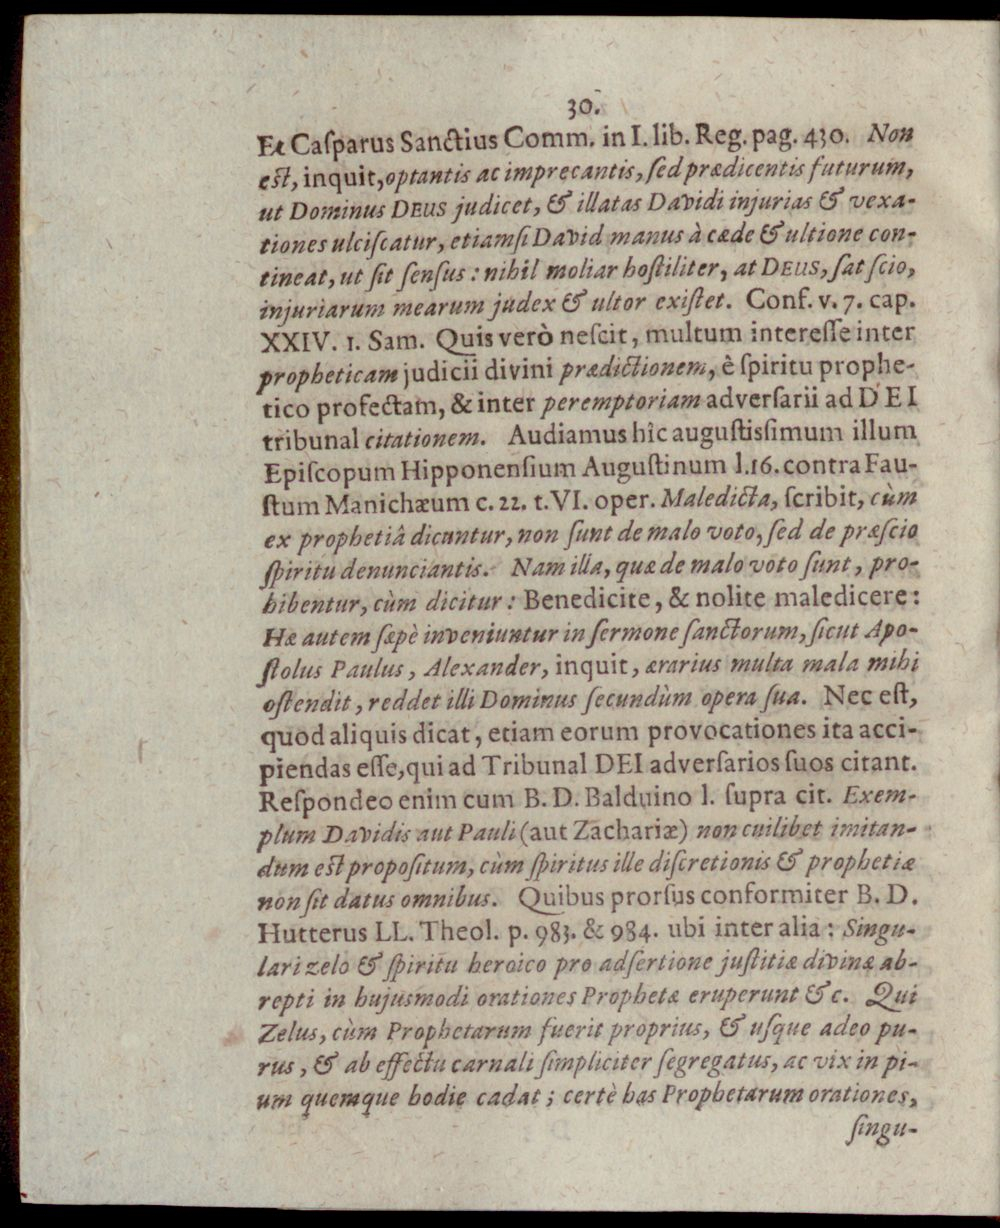 30.
Et Caſparus Sanctius Comm. in I. lib. Reg. pag. 430. Non
est, inquit, optantis ac imprecantis, ſed prædicentis futurum,
ut Dominus DEUS judicet, & illatas Davidi injurias & vexa-
tiones ulciſcatur, etiamſi David manus à cæde & ultione con-
tineat, ut ſit ſenſus: nihil moliar hoſtiliter, at DEUS, ſat ſcio,
injuriarum mearum judex & ultor exiſtet. Conf. v. 7. cap.
XXIV. 1. Sam. Quis verò neſcit, multum intereſſe inter
propheticam judicii divini prædictionem, è ſpiritu prophe-
tico profectam, & inter peremptoriam adverſarii ad DEI
tribunal citationem. Audiamus hîc auguſtiſſimum illum
Epiſcopum Hipponenſium Auguſtinum l.16. contra Fau-
ſtum Manichæum c. 22. t. VI. oper. Maledicta, ſcribit, cùm
ex prophetiâ dicuntur, non ſunt de malo voto, ſed de præſcio
ſpiritu denunciantis. Nam illa, quæ de malo voto ſunt, pro-
hibentur, cùm dicitur: Benedicite, & nolite maledicere:
Hæ autem ſæpè inveniuntur in ſermone ſanctorum, ſicut Apo-
ſtolus Paulus, Alexander, inquit, ærarius multa mala mihi
oſtendit, reddet illi Dominus ſecundùm opera ſua. Nec eſt,
quod aliquis dicat, etiam eorum provocationes ita acci-
piendas eſſe, qui ad Tribunal DEI adverſarios ſuos citant.
Reſpondeo enim cum B. D. Balduino l. ſupra cit. Exem-
plum Davidis aut Pauli (aut Zachariæ) non cuilibet imitan-
dum est propoſitum, cùm ſpiritus ille diſcretionis & prophetiæ
non ſit datus omnibus. Quibus prorſus conformiter B. D.
Hutterus LL. Theol. p. 983. & 984. ubi inter alia: Singu-
lari zelo & ſpiritu heroico pro adſertione juſtitiæ divinæ ab-
repti in hujusmodi orationes Prophetæ eruperunt & c. Qui
Zelus, cùm Prophetarum fuerit proprius, & uſque adeo pu-
rus, & ab effectu carnali ſimpliciter ſegregatus, ac vix in pi-
um quemque hodie cadat; certè has Prophetarum orationes,
ſingu-